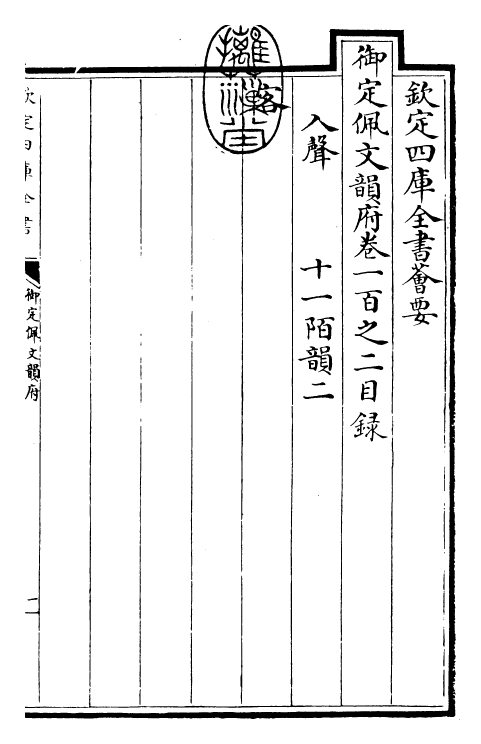 欽定四庫全書薈要
御定佩文韻府卷一百之二目録
入聲
十一陌韻二
客
欽定四庫全書
御定佩文韻府